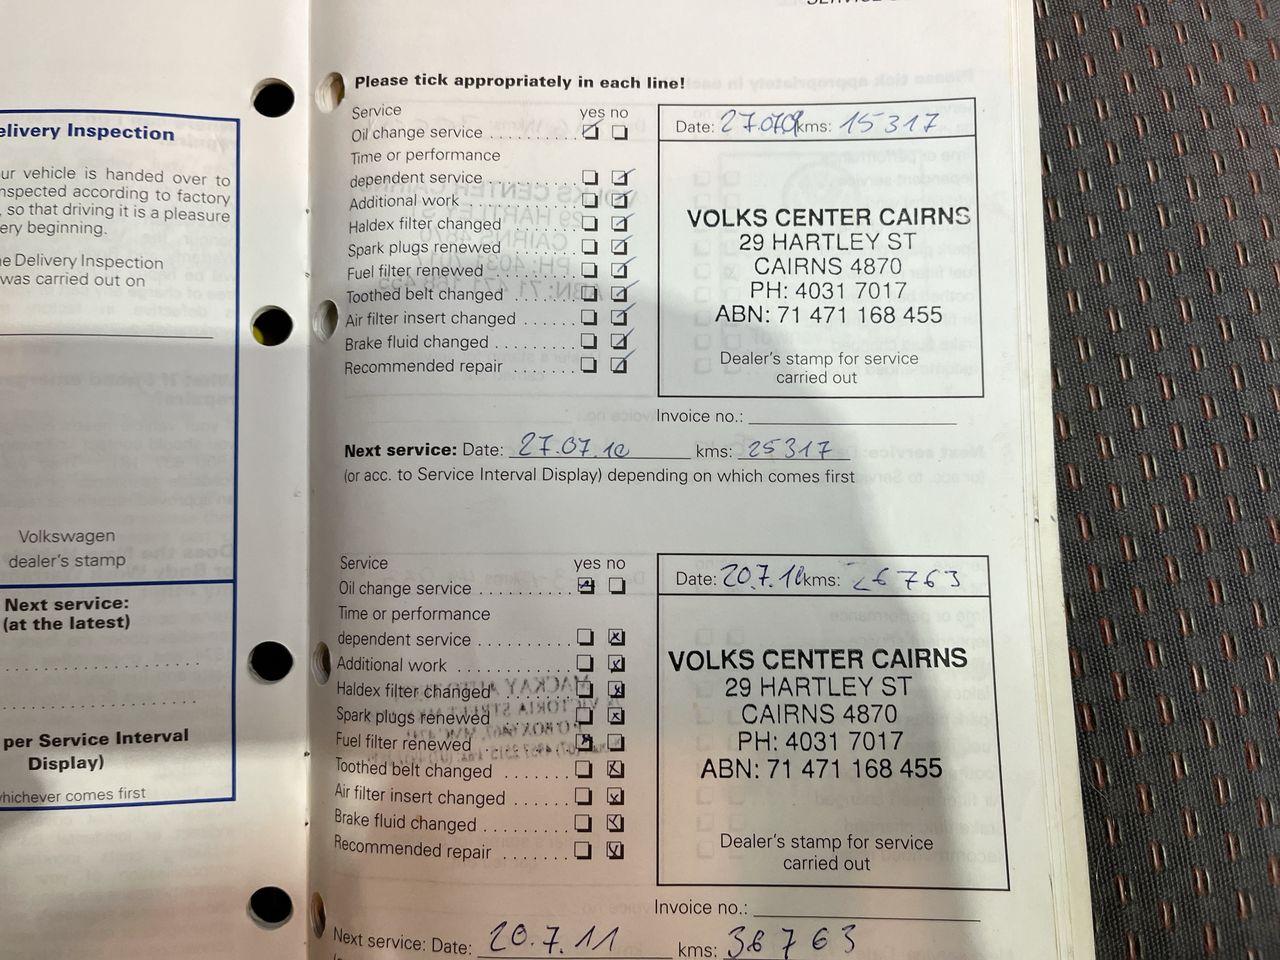 elivery Inspection
ur vehicle is handed over to
nspected according to factory
, so that driving it is a pleasure
ery beginning.
e Delivery Inspection
was carried out on
Volkswagen
dealer's stamp
Next service:
(at the latest)
per Service Interval
Display)
whichever comes first
Please tick appropriately in each line!
Service yes no
Oil change service
Time or performance
dependent service
Additional work
Haldex filter changed
Spark plugs renewed
Fuel filter renewed
Toothed belt changed
Air filter insert changed
Brake fluid changed
Recommended repair
Date: 27.07.09 kms: 15317
VOLKS CENTER CAIRNS
29 HARTLEY ST
CAIRNS 4870
PH: 4031 7017
ABN: 71 471 168 455
Dealer's stamp for service
carried out
Invoice no.:
Next service: Date: 27.07.10 kms: 25317
(or acc. to Service Interval Display) depending on which comes first
Service yes no
Oil change service
Time or performance
dependent service
Additional work
Haldex filter changed
Spark plugs renewed
Fuel filter renewed
Toothed belt changed
Air filter insert changed
Brake fluid changed
Recommended repair
Date: 20.7.10 kms: 26763
VOLKS CENTER CAIRNS
29 HARTLEY ST
CAIRNS 4870
PH: 4031 7017
ABN: 71 471 168 455
Dealer's stamp for service
carried out
Invoice no.:
Next service: Date: 20.7.11 kms: 36763